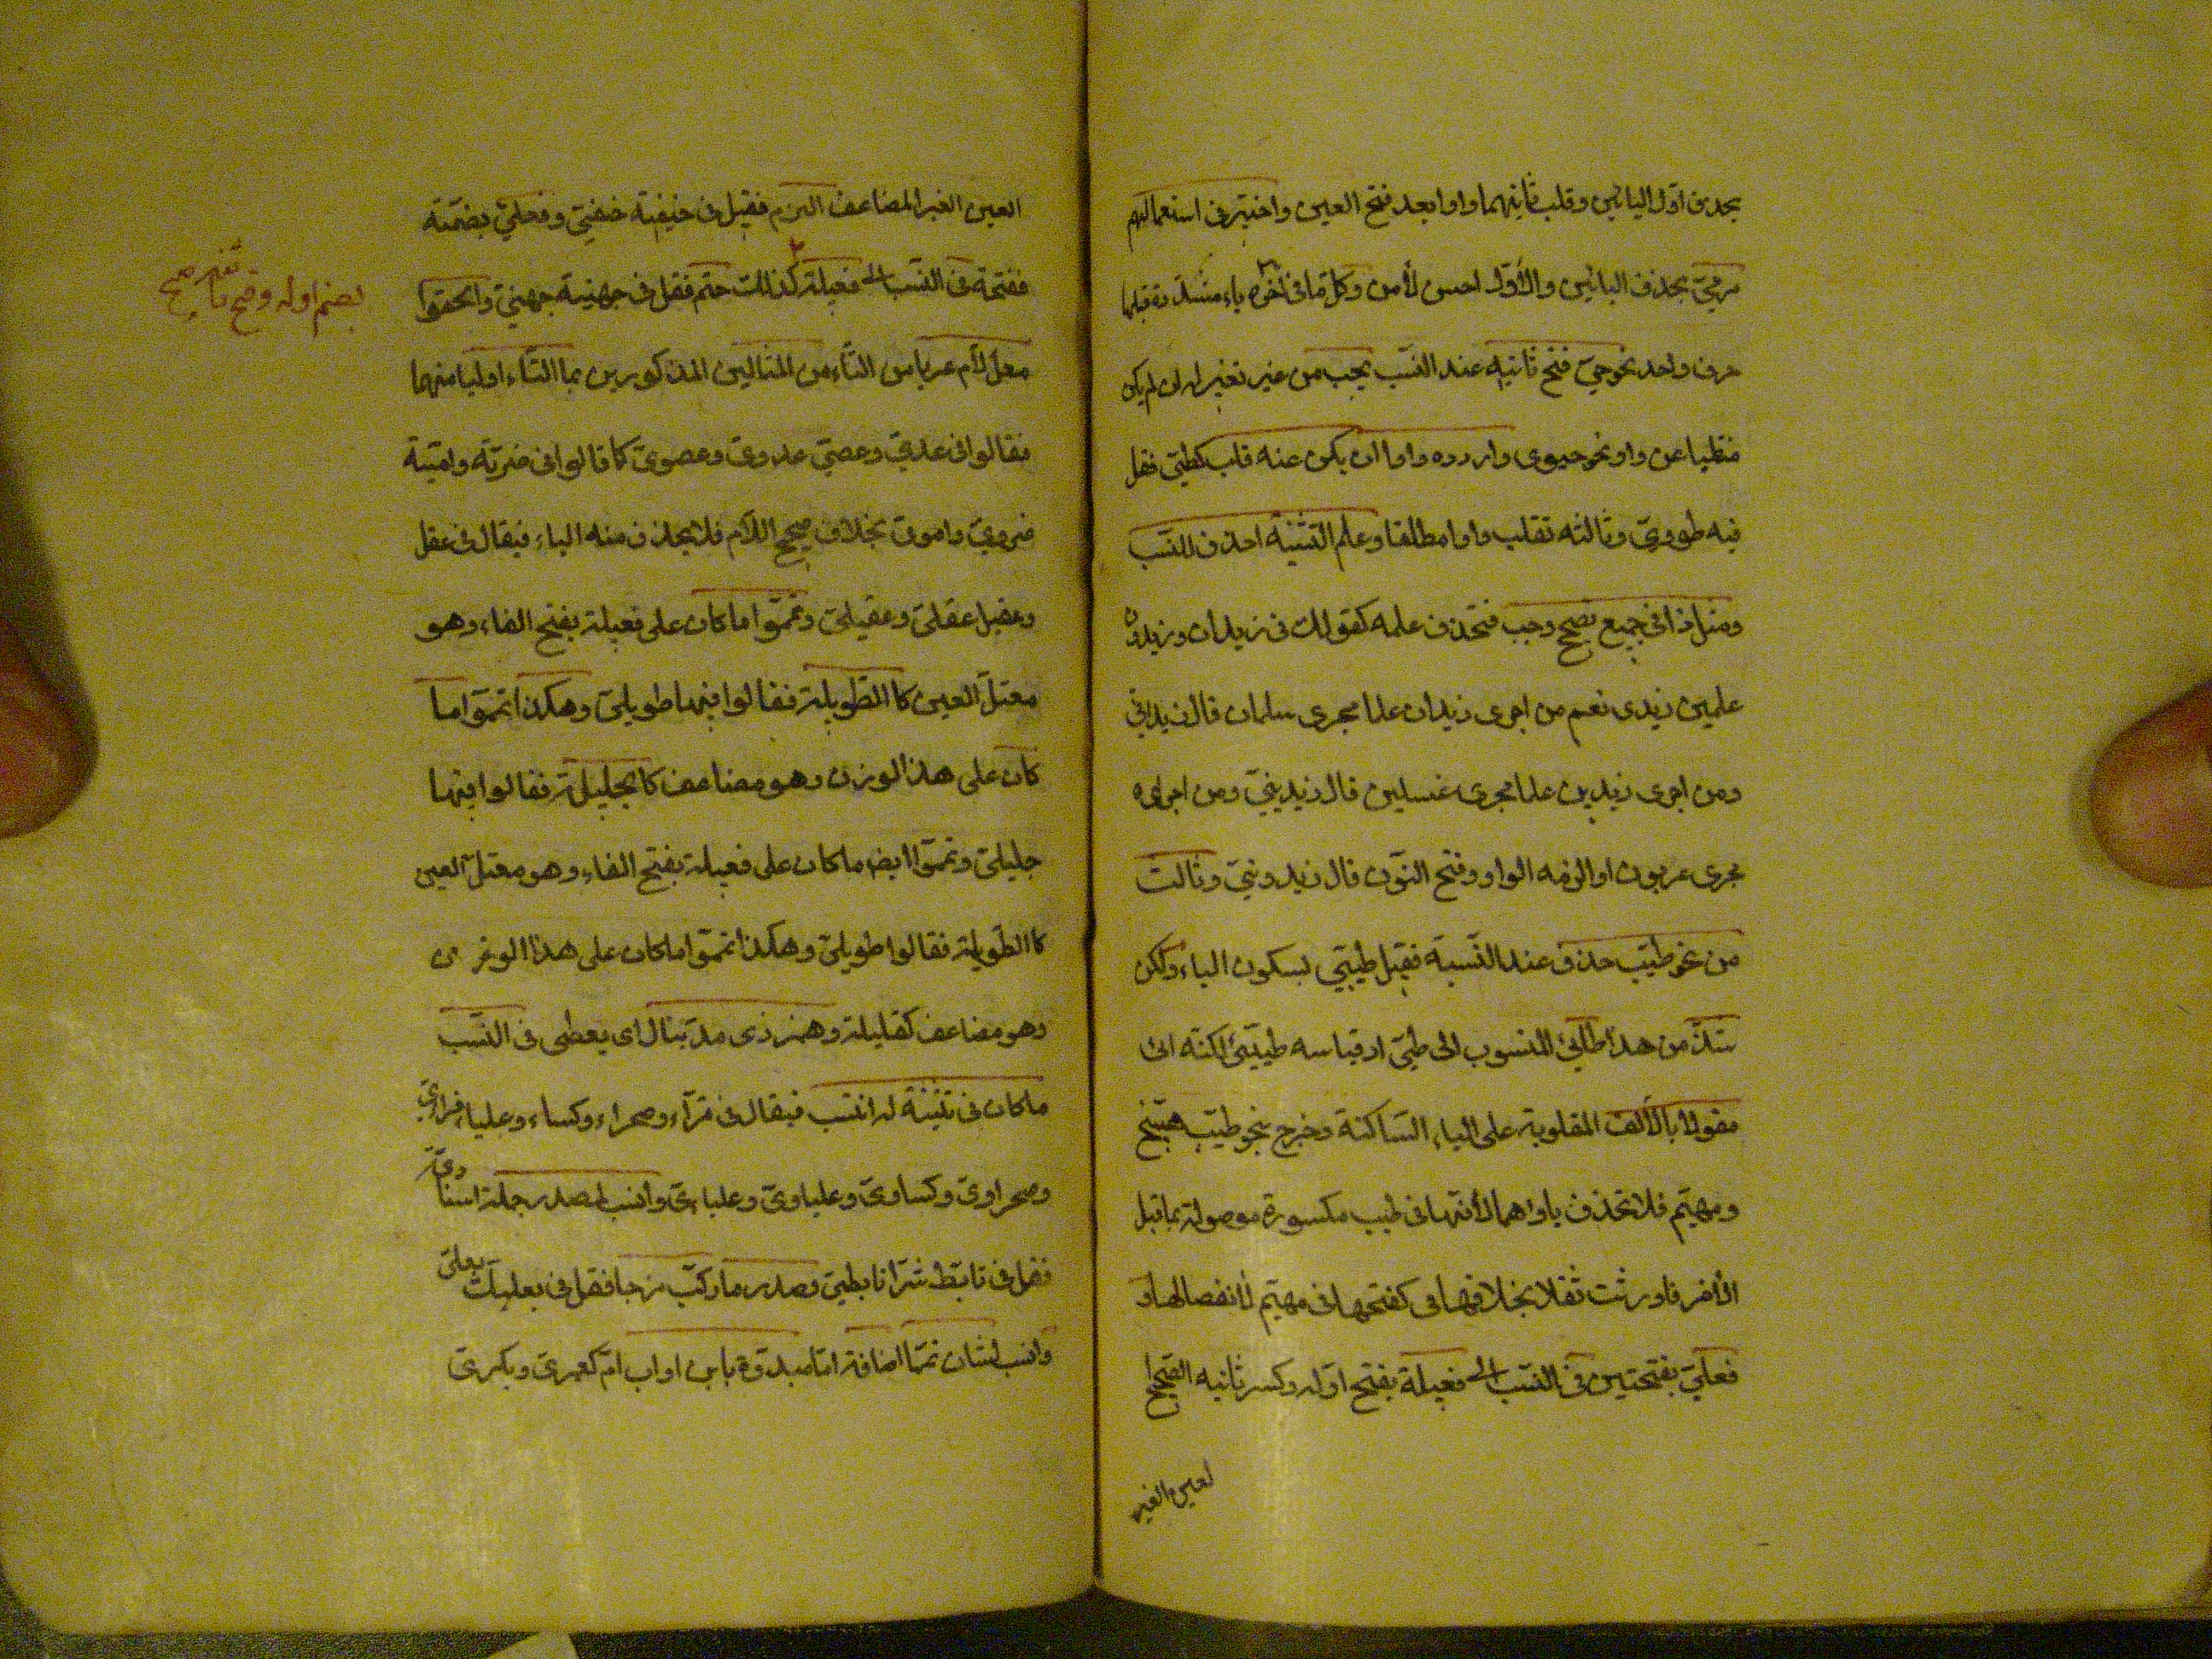 بحذف اول اليائين وقلب ثانيهما واوا بعد فتح العين واختير في استعمالهم
مرميّ بحذف اليائين والاوّل احسن لأمن وكل ما في آخره ياء مشددة قبلها
حرف واحد نحو حيّ فتح ثانيه عند النسب يجب من غير تغير له ان لم يكن
منقلبا عن واو نحو حيوى واردده واوا ان يكن عنه قلب كطيّ فقل
فيه طوويّ وثالثه تقلب واوا مطلقا وعلم التثنية احذف للنسب
ومثل ذا في جميع تصحيح وجب فتحذف علمه كقولك في زيدان وزيدون
علمين زيدى نعم من اجرى زيدان علما مجرى سلمان قال زيدانيّ
ومن اجرى زيدين علما مجرى غسلين قال زيدينيّ ومن اجراه
مجرى عربون او الزمه الواو وفتح النون قال زيدونيّ وثالث
من نحو طيّب حذف عند النسبة فقيل طيبيّ بسكون الياء ولكن
شذّ من هذا طائيّ المنسوب الى طيّ اذ قياسه طيئيّ لكنه اتى
مقولا بالألف المقلوبة على الياء الساكنة وخرج بنحو طيّب هبيّخ
ومهيّم فلا تحذف ياؤهما لأنها في طيب مكسورة موصولة بما قبل
الأخر فاورثت ثقلا بخلافها في كفتحها في مهيّم لأنفصالها و
فعليّ بفتحتين في النسب الى فعيلة بفتح اوله وكسر ثانيه الصحيح
لعين الغير
العين الغير المضاعف التزم فقيل في حنيفة حنفيّ وفعليّ بضمّة
ففتحة في النسب الى فعيلة كذالك حتم فقل في جهينة جهنيّ والحقوا
بضم اوله وفتح ثانيه صح
معلّ لام عريا من التاء من المثالين المذكورين بما التاء اوليا منهما
فقالوا في عديّ وعصيّ عدويّ وعصويّ كما قالوا في ضريّة واميّة
ضرويّ واموىّ بخلاف صحيح اللام فلا يحذف منه الياء فيقال في عقيل
وعقيل عقيليّ وعقيليّ وتمموا ما كان على فعيلة بفتح الفاء وهو
معتلّ العين كالطويلة فقالوا فيها طويليّ وهكذا تمموا ما
كان على هذا الوزن وهو مضاعف كالجليلة فقالوا فيها
جليليّ وتمموا ايضا ما كان على فعيلة بفتح الفاء وهو معتلّ العين
كالطويلة فقالوا طويليّ وهكذا تمموا ما كان على هذا الوزن
وهو مضاعف كقليلة وهمز ذى مدّ ينال اى يعطى في النسب
ما كان في تثنية له انتسب فيقال في قرّاء وصحراء وكساء وعلباء قراءيّ
وصحراويّ وكساويّ وعلباويّ وعلبائيّ وانسب لصدر جملة اسنادىّ
فقل في تابّط شرّا تابطيّ وصدر ما ركّب مزجا فقل في بعلبك بعليّ
وانسب لثان تمما اضافة امّا مبدوة بابن او اب امّ كعمريّ وبكريّ